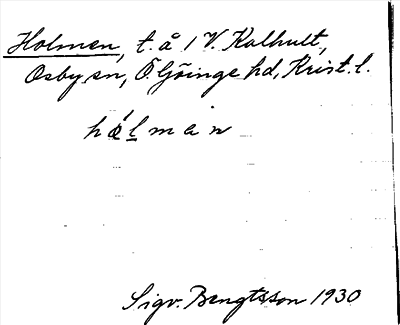 Holmen, t. å 1 V. Kalhult,
Osby sn, Ö. Göinge hd, Krist. l.
Sigv. Bengtsson 1930